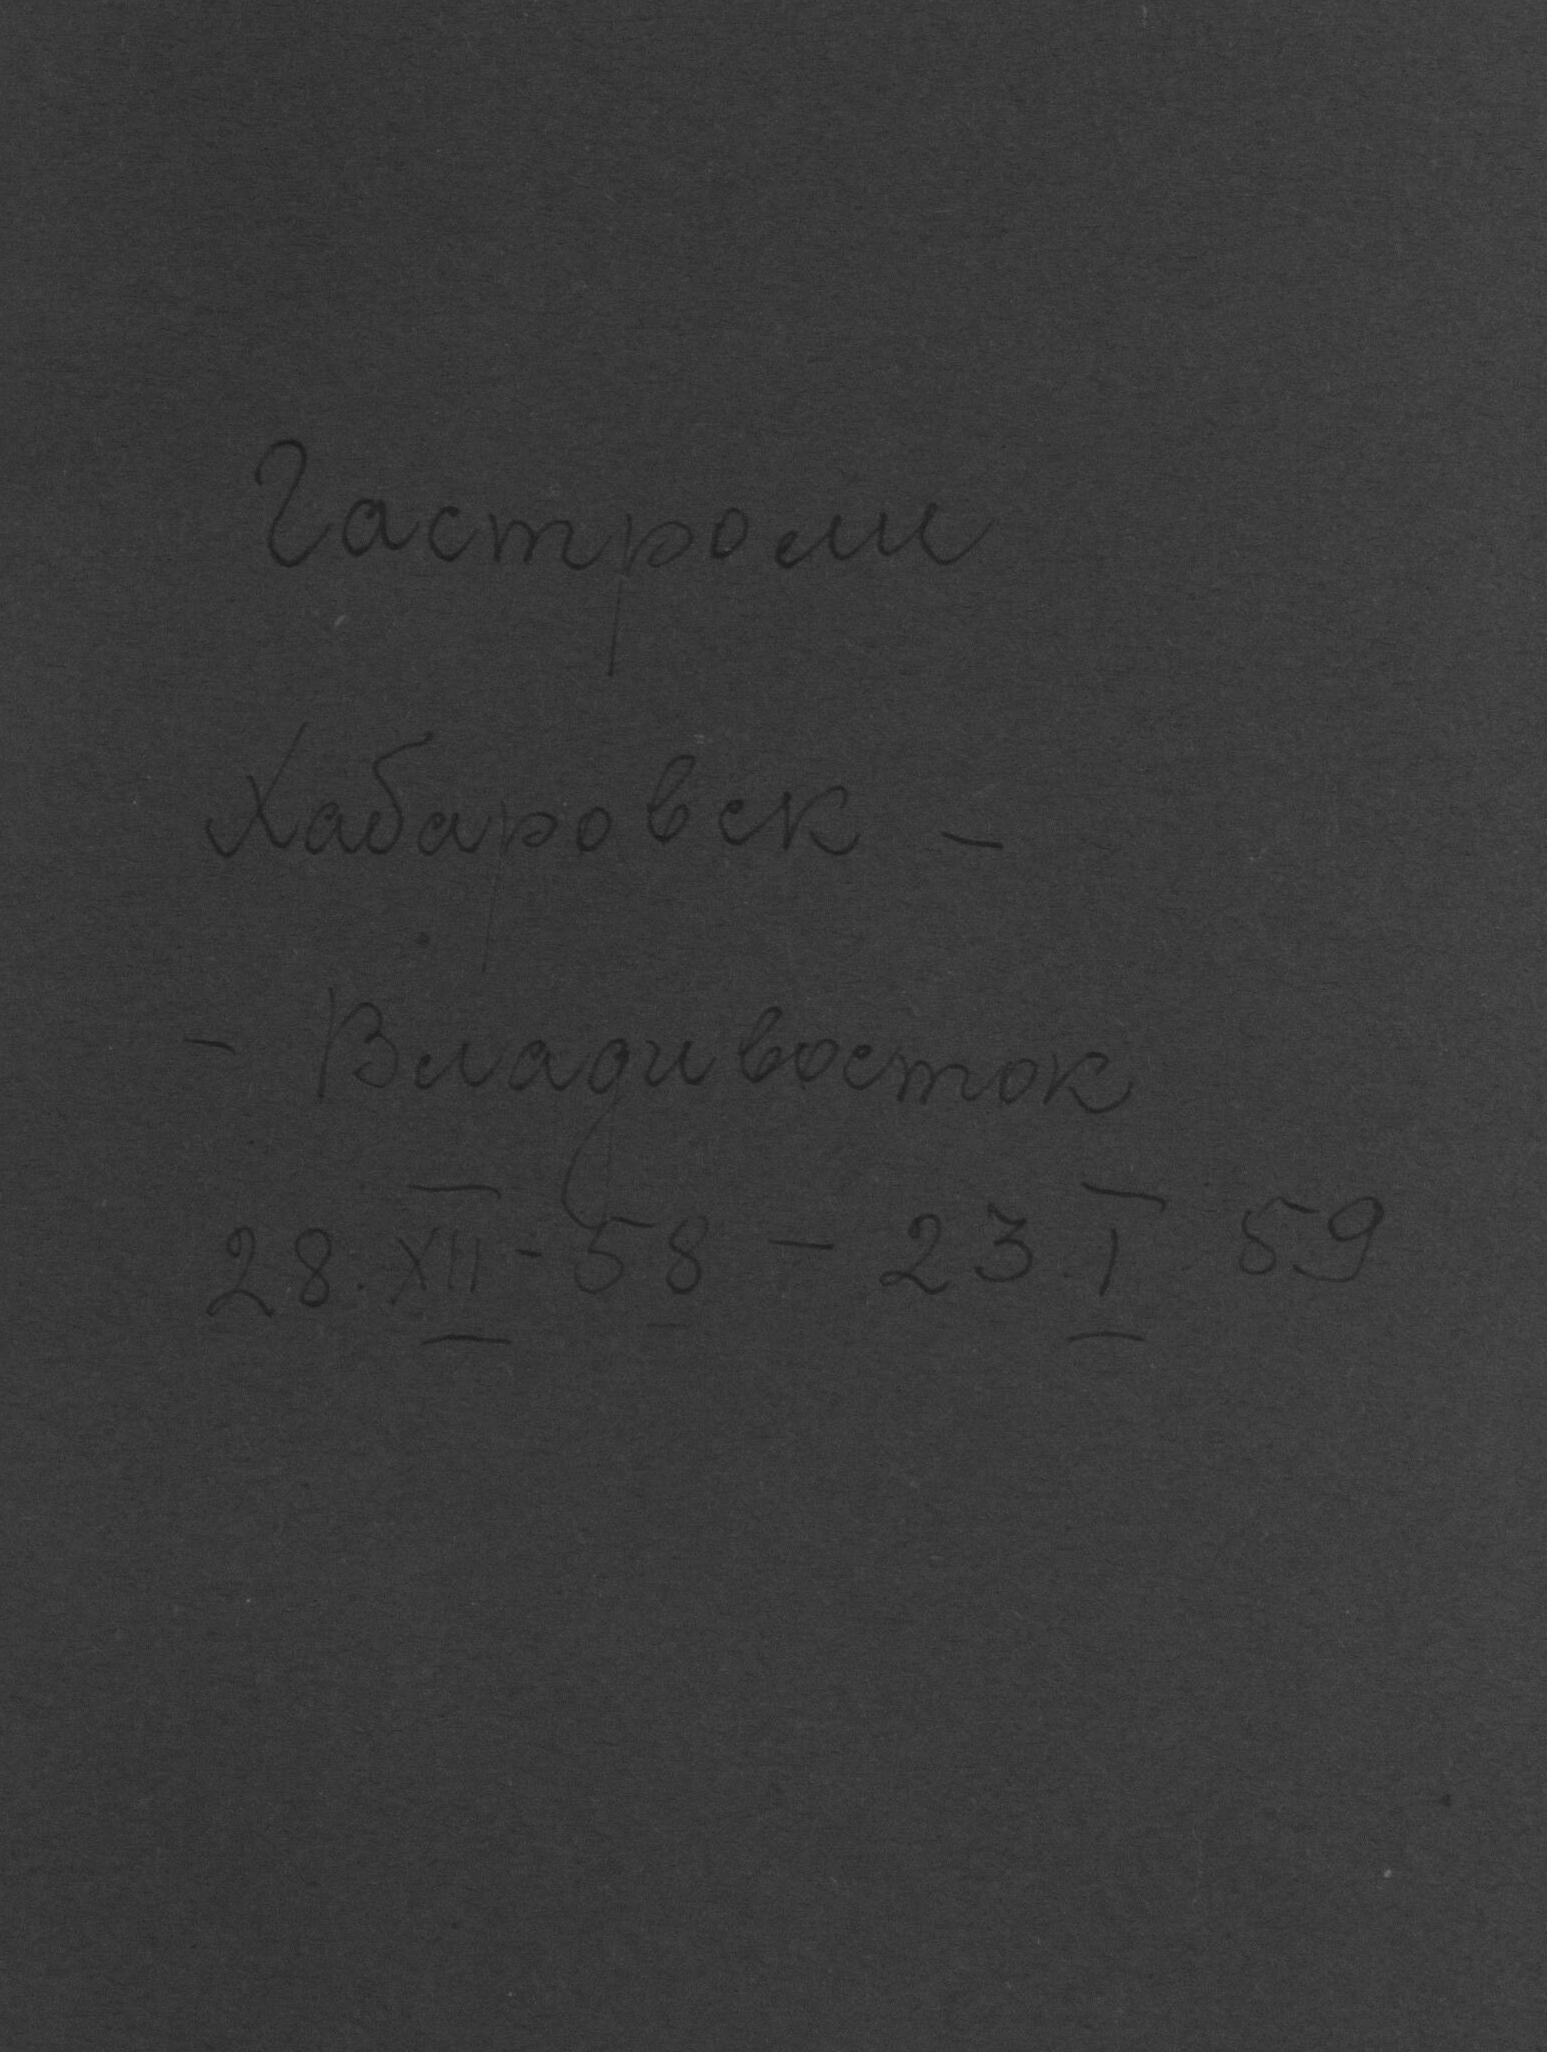 Гастроли
Хабаровск -
- Владивосток
28. XII - 58 - 23 I 59